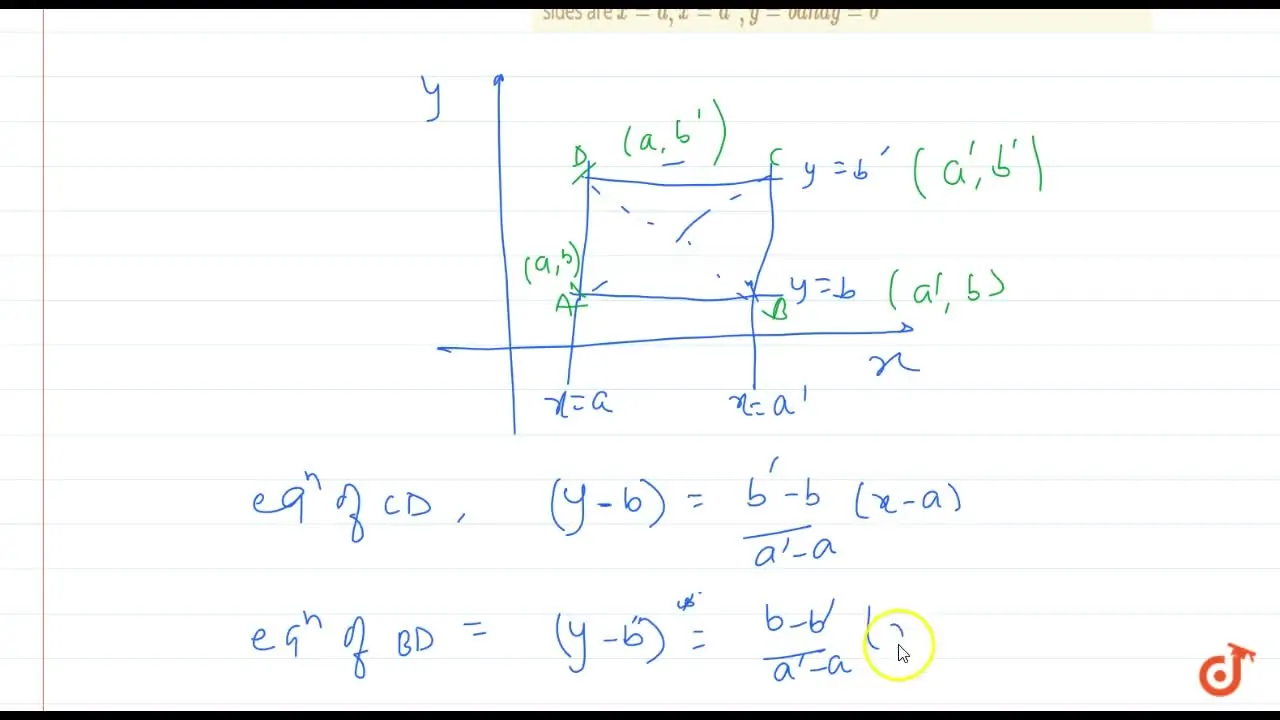 sides are x = a, x = a', y = b and y = b'
y
(a, b')
D
C
y = b' (a', b')
(a, b)
A
B
y = b (a', b)
x
x = a
x = a'
eqⁿ of CD, (y - b) = b' - b / a' - a (x - a)
eqⁿ of BD = (y - b') = b - b' / a' - a (